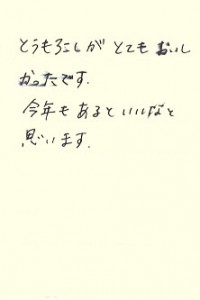 とうもろこしが とても おいし
かったです.
今年も あると いいなと
思います.